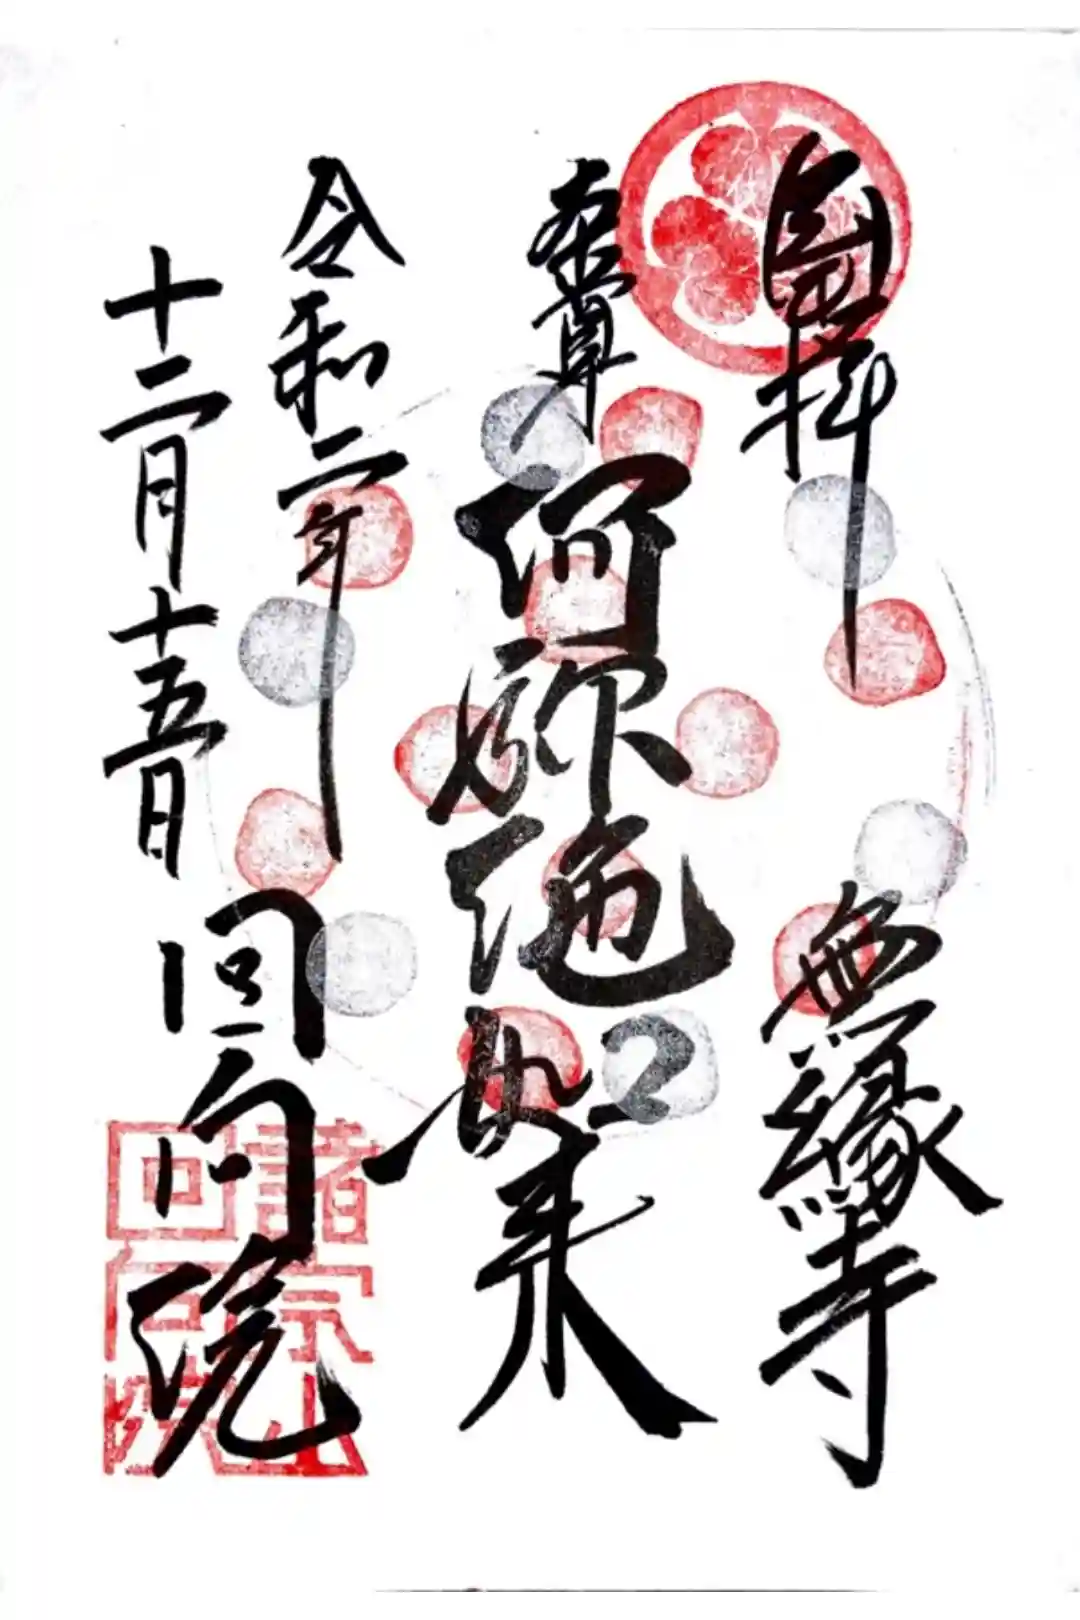 拝 無縁寺
本尊 阿弥陀如来
令和二年
十二月十五日
回向院
諸宗山
回向院